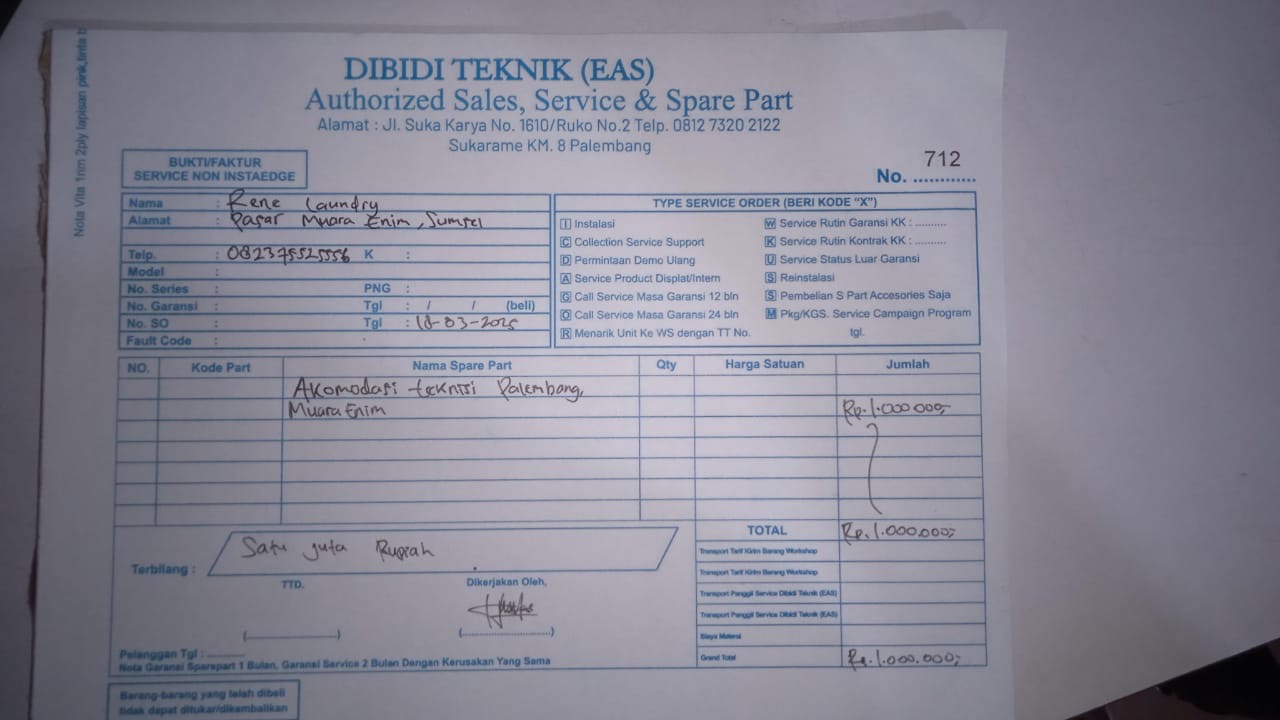 Nota Vita 1rim 2ply lapisan pink,tinta b
DIBIDI TEKNIK (EAS)
Authorized Sales, Service & Spare Part
Alamat : Jl. Suka Karya No. 1610/Ruko No.2 Telp. 0812 7320 2122
Sukarame KM. 8 Palembang
BUKTI/FAKTUR
SERVICE NON INSTAEDGE
No. 712
Nama : Rene Laundry
Alamat : Pasar Muara Enim, Sumsel
Telp. : 082375525556 K :
Model :
No. Series : PNG :
No. Garansi : Tgl : / / (beli)
No. SO : Tgl : 18-03-2025
Fault Code :
TYPE SERVICE ORDER (BERI KODE "X")
I Instalasi
C Collection Service Support
D Permintaan Demo Ulang
A Service Product Displat/Intern
G Call Service Masa Garansi 12 bln
O Call Service Masa Garansi 24 bln
R Menarik Unit Ke WS dengan TT No. tgl.
W Service Rutin Garansi KK : ..........
K Service Rutin Kontrak KK : ..........
U Service Status Luar Garansi
S Reinstalasi
S Pembelian S Part Accesories Saja
M Pkg/KGS. Service Campaign Program
NO. Kode Part Nama Spare Part Qty Harga Satuan Jumlah
Akomodasi teknisi Palembang,
Muara Enim Rp. 1.000.000,-
TOTAL Rp. 1.000.000,-
Transport Tarif Kirim Barang Workshop
Transport Tarif Kirim Barang Workshop
Transport Panggil Service Dibidi Teknik (EAS)
Transport Panggil Service Dibidi Teknik (EAS)
Biaya Materai
Grand Total Rp. 1.000.000,-
Terbilang : Satu juta Rupiah
TTD. Dikerjakan Oleh,
(........................) (........................)
Pelanggan Tgl : ..........
Nota Garansi Sparepart 1 Bulan, Garansi Service 2 Bulan Dengan Kerusakan Yang Sama
Barang-barang yang telah dibeli
tidak dapat ditukar/dikembalikan